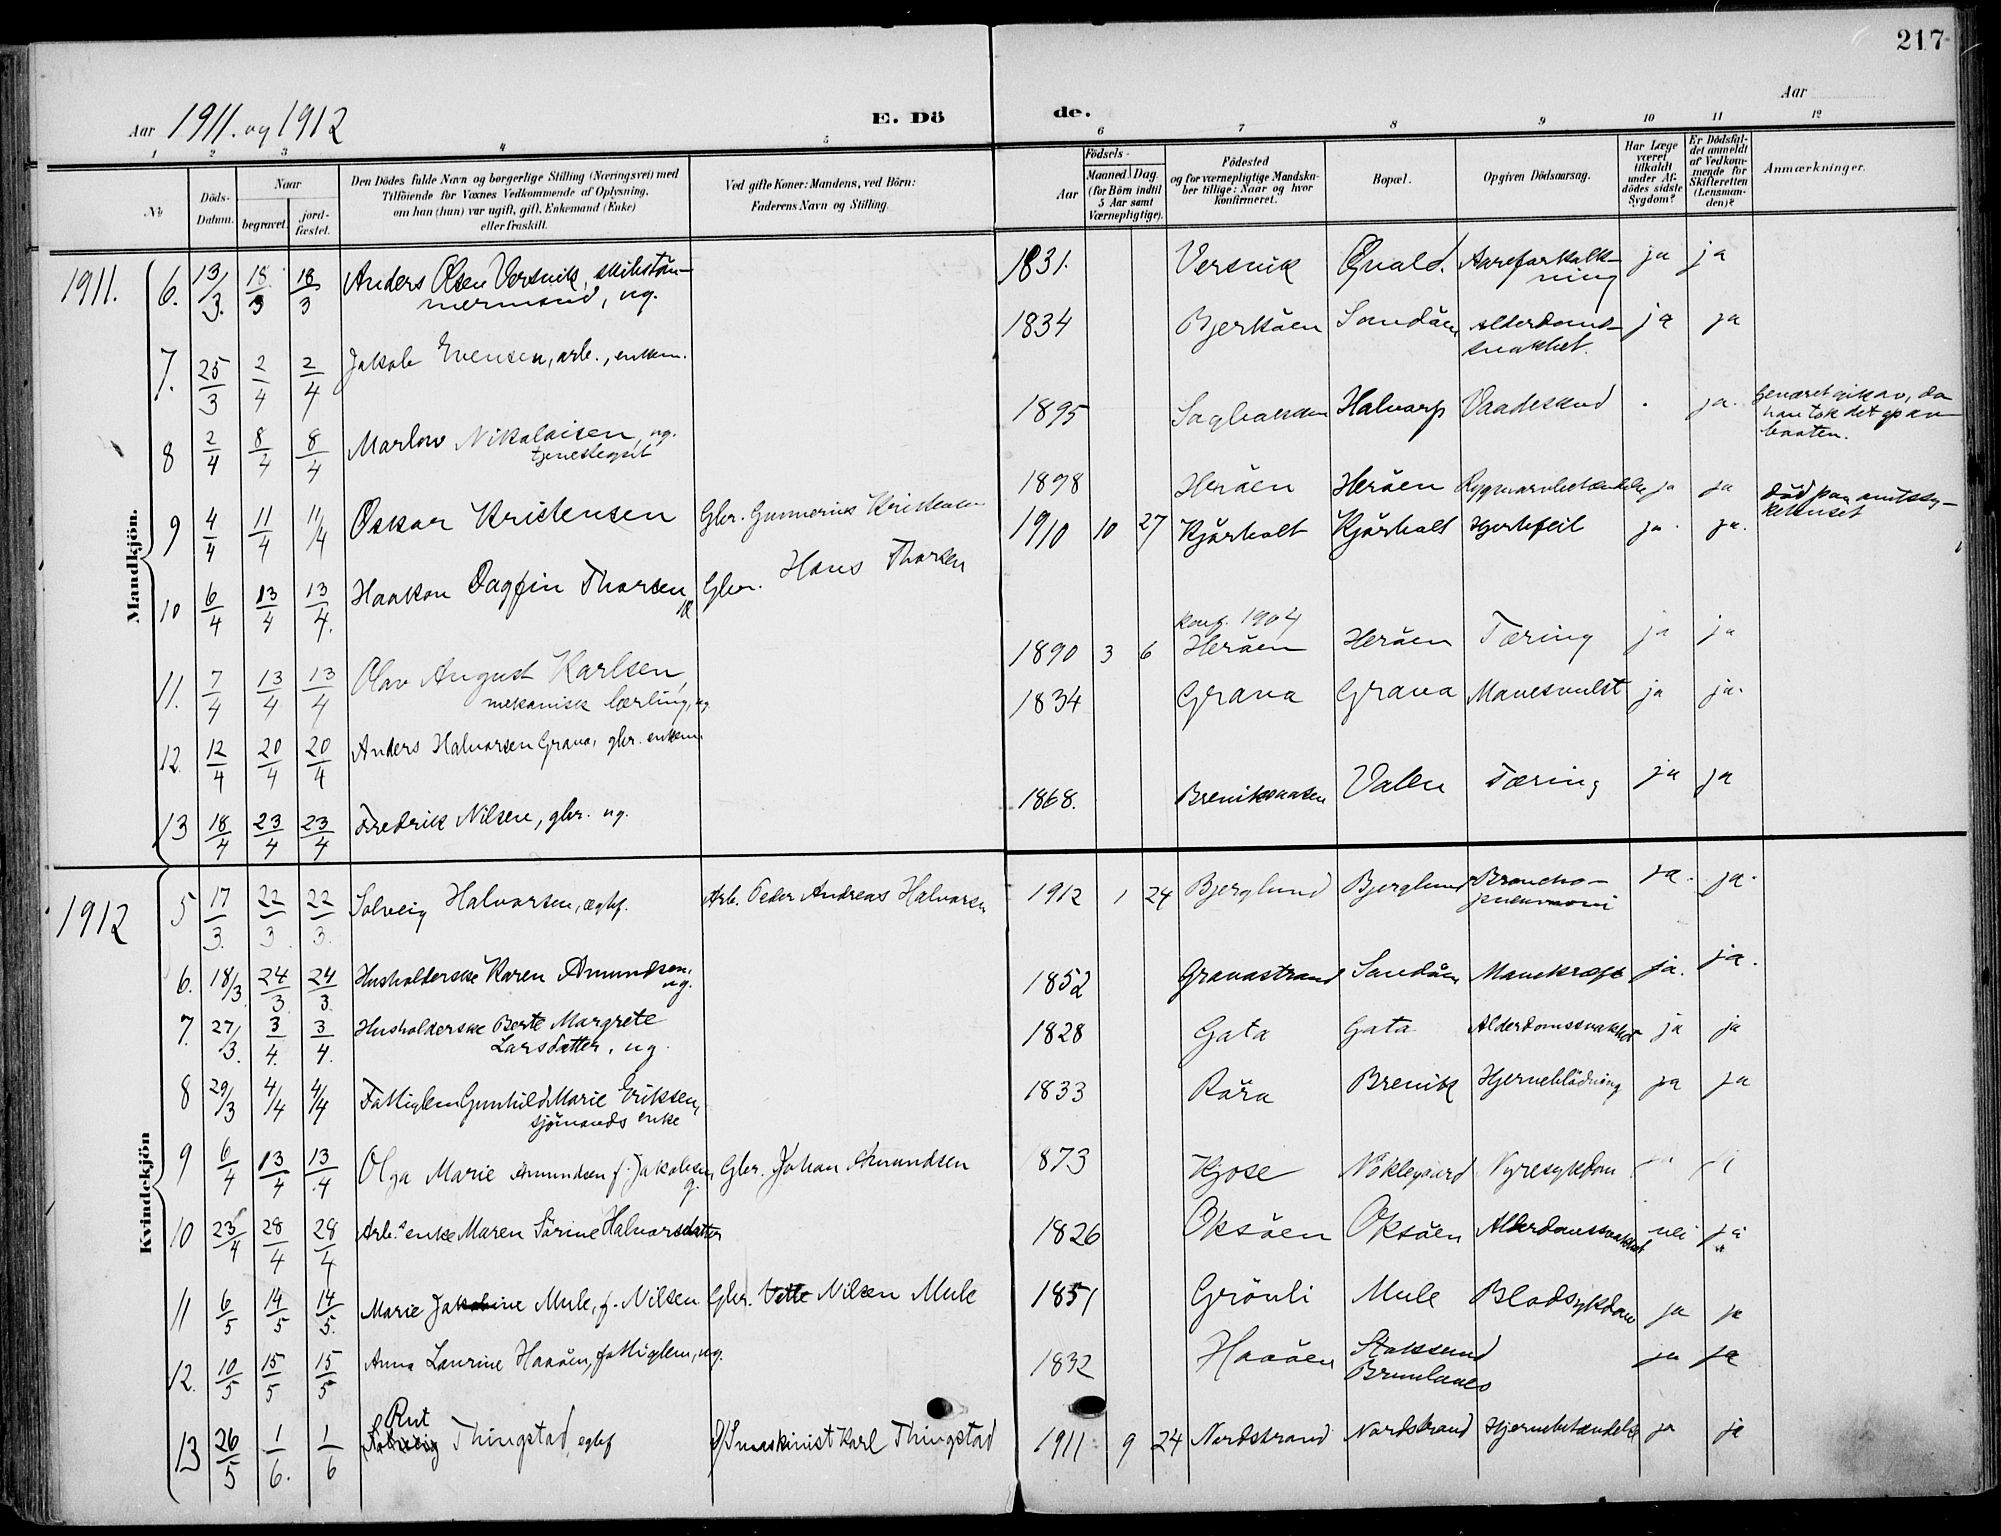 217
Aar 1911. og 1912
E. Dö de.
Aar
1 2 3 4 5 6 7 8 9 10 11 12
№
Döds-Datum.
Naar
begravet.
jord-fæstet.
Den Dödes fulde Navn og borgerlige Stilling (Næringsvei) med
Tilföiende for Voxnes Vedkommende af Oplysning,
om han (hun) var ugift, gift, Enkemand (Enke)
eller fraskilt.
Ved gifte Koner: Mandens, ved Börn:
Faderens Navn og Stilling.
Födsels-
Aar
Maaned Dag.
(for Börn indtil
5 Aar samt
Værnepligtige).
Födested
og for værnepligtige Mandskaber tillige: Naar og hvor
Konfirmeret.
Bopæl.
Opgiven Dödsaarsag.
Har Læge
været
tilkaldt
under Afdödes sidste
Sygdom?
Er Dödsfaldet anmeldt
af Vedkommende for
Skifteretten
(Lensmanden)?
Anmærkninger.
Mandkjön.
1911. 6. 13/3. 18/3 18/3 Anders Olsen Versvik, skibstömmermand, ug. 1831. Versvik Övald. Aareforkalkning ja ja
7. 25/3 2/4 2/4 Jakob Evensen, arb., enkem. 1834 Bjerköen Sandöen Alderdomssvakhet. ja ja
8 2/4 8/4 8/4 Marlow Nikolaisen, ug. tjenestegut 1895 Saghaugen Halvarp Vaadeskud . ja. Geværet gik av, da han tok det op av baaten.
9 4/4 11/4 11/4 Oskar Kristensen Gbr. Gunnerius Kristensen 1898 Heröen Heröen Rygmarvbetændelse ja ja död paa amtssykehuset
10 6/4 13/4 13/4. Haakon Dagfin Thorsen Gbr. Hans Thorsen 1910 10 27 Kjörholt Kjörholt Hjertefeil ja. ja.
11. 7/4 13/4 13/4 Olav August Karlsen, mekanisk lærling, ug. 1890 3 6 konf. 1904 Heröen Heröen Tæring ja ja
12. 12/4 20/4 20/4 Anders Halvorsen Grava, gbr. enkem. 1834 Grava Grava Mavesvulst ja ja.
13 18/4 23/4 23/4 Fredrik Nilsen, gbr. ug. 1868. Brevikaasen Valen Tæring ja ja
Kvindekjön
1912 5 17/3. 22/3. 22/3. Solveig Halvorsen, ægtef. Arb. Peder Andreas Halvorsen 1912 1 24 Bjerglund Bjerglund Bronchopneumoni ja. ja.
6. 18/3. 24/3 24/3 Husholderske Karen Amundsen, ug. 1852 Gravastrand Sandöen Mavekræft ja. ja.
7. 27/3. 3/4. 3/4. Husholderske Berte Margrete Larsdatter, ug. 1828 Gata Gata Alderdomssvakhet ja ja
8 29/3 4/4 4/4 Fattiglem Gunhild Marie Eriksen, sjömands enke 1833 Röra Brevik Hjerneblödning ja ja
9 6/4 13/4 13/4 Olga Marie Amundsen f. Jakobsen, g. Gbr. Johan Amundsen 1873 Kjose Nöklegaard Nyresykdom
10 23/4 28/4 28/4 Arb.s enke Maren Sörine Halvorsdatter 1826 Oksöen Oksöen Alderdomssvakhet nei ja
11 6/5 14/5 14/5. Marie Jakobine Mule, f. Nilsen Gbr. Nilsen Mule 1851 Grönli Mule Blodsykdom ja ja
12. 10/5 15/5 15/5 Anna Laurine Haaöen, fattiglem, ug. 1832 Haaöen Stokksund Brunlanes ja ja
13 26/5 1/6. 1/6 Rut Solveig Thingstad, egtef D/S maskinist Karl Thingstad 1911 9 24 Nordstrand Nordstrand Hjernebetændelse ja ja